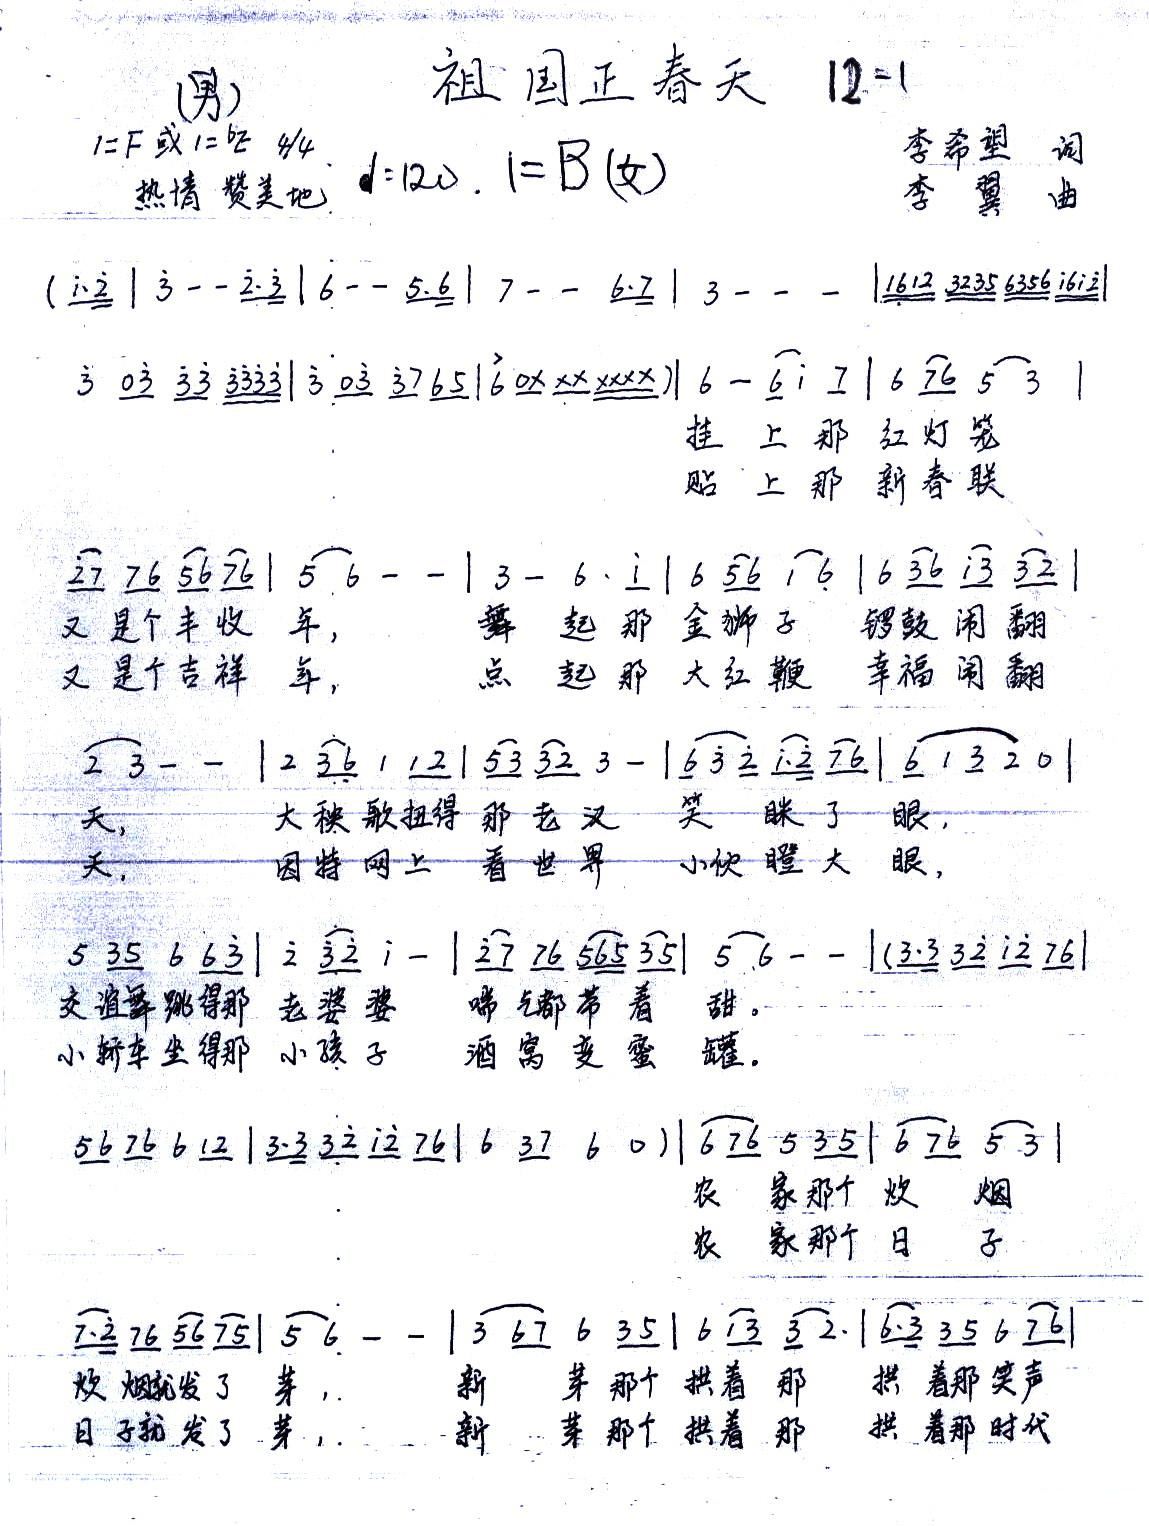 祖国正春天 12=1
(男)
1=F或1=bE 4/4
热情 赞美地 ♩=120. 1=B(女)
李希望 词
李翼 曲
(i·2̇ | 3̇ - - 2̇·3̇ | 6 - - 5·6 | 7 - - 6·7 | 3 - - - | 1612 3235 6356 i6i2̇ |
3̇ 03̇ 3̇3̇ 3̇3̇3̇3̇ | 3̇ 03̇ 3̇7 65 | 6 0X XX XXXX) | 6 - 6 i 7 | 6 76 5 3 |
挂 上 那 红 灯 笼
贴 上 那 新 春 联
2̇7 76 56 76 | 5 6 - - | 3 - 6 · i | 6 56 i 6 | 6 36 i3 32 |
又 是个 丰 收 年, 舞 起 那 金 狮 子 锣鼓 闹 翻
又 是个 吉 祥 年, 点 起 那 大 红 鞭 幸福 闹 翻
2 3 - - | 2 36 1 12 | 53 32 3 - | 6 3̇ 2̇ i·2̇ 76 | 6 1 3 2 0 |
天, 大 秧 歌 扭得 那 老 汉 笑 眯 了 眼,
天, 因 特 网 上 看 世 界 小伙 瞪 大 眼,
5 35 6 63̇ | 2̇ 3̇2̇ i - | 2̇7 76 565 35 | 5 6 - - | (3·3 32̇ i2̇ 76 |
交 谊舞 跳 得那 老 婆 婆 喘 气都 带 着 甜。
小 轿车 坐 得那 小 孩 子 酒 窝 变 蜜 罐。
56 76 6 12 | 3·3 32̇ i2̇ 76 | 6 37 6 0) | 6 76 5 35 | 6 76 5 3 |
农 家 那个 炊 烟
农 家 那个 日 子
7·2̇ 76 56 75 | 5 6 - - | 3 67 6 35 | 6 i3 3 2· | 6·3 35 6 76 |
炊 烟就 发 了 芽, 新 芽 那个 拱着 那 拱 着那 笑声
日 子就 发 了 芽, 新 芽 那个 拱着 那 拱 着那 时代